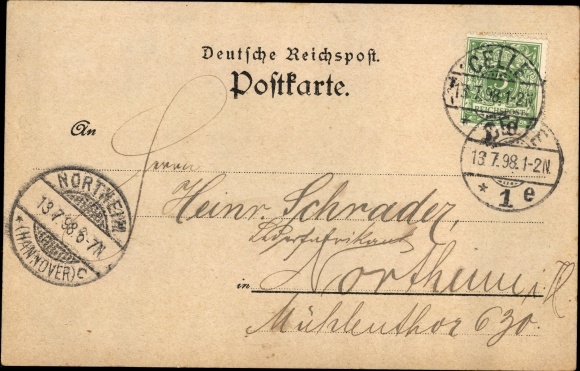 Deutsche Reichspost.
Postkarte.
An
Herrn
Heinr. Schrader,
Lederfabrikant
in Northeim i/H
Mühlenthor 630.
CELLE
13.7.98.1-2N.
* 1 e
13.7.98.1-2N.
* 1 e
NORTHEIM
13.7.98.6-7N.
* (HANNOVER) C
REICHSPOST